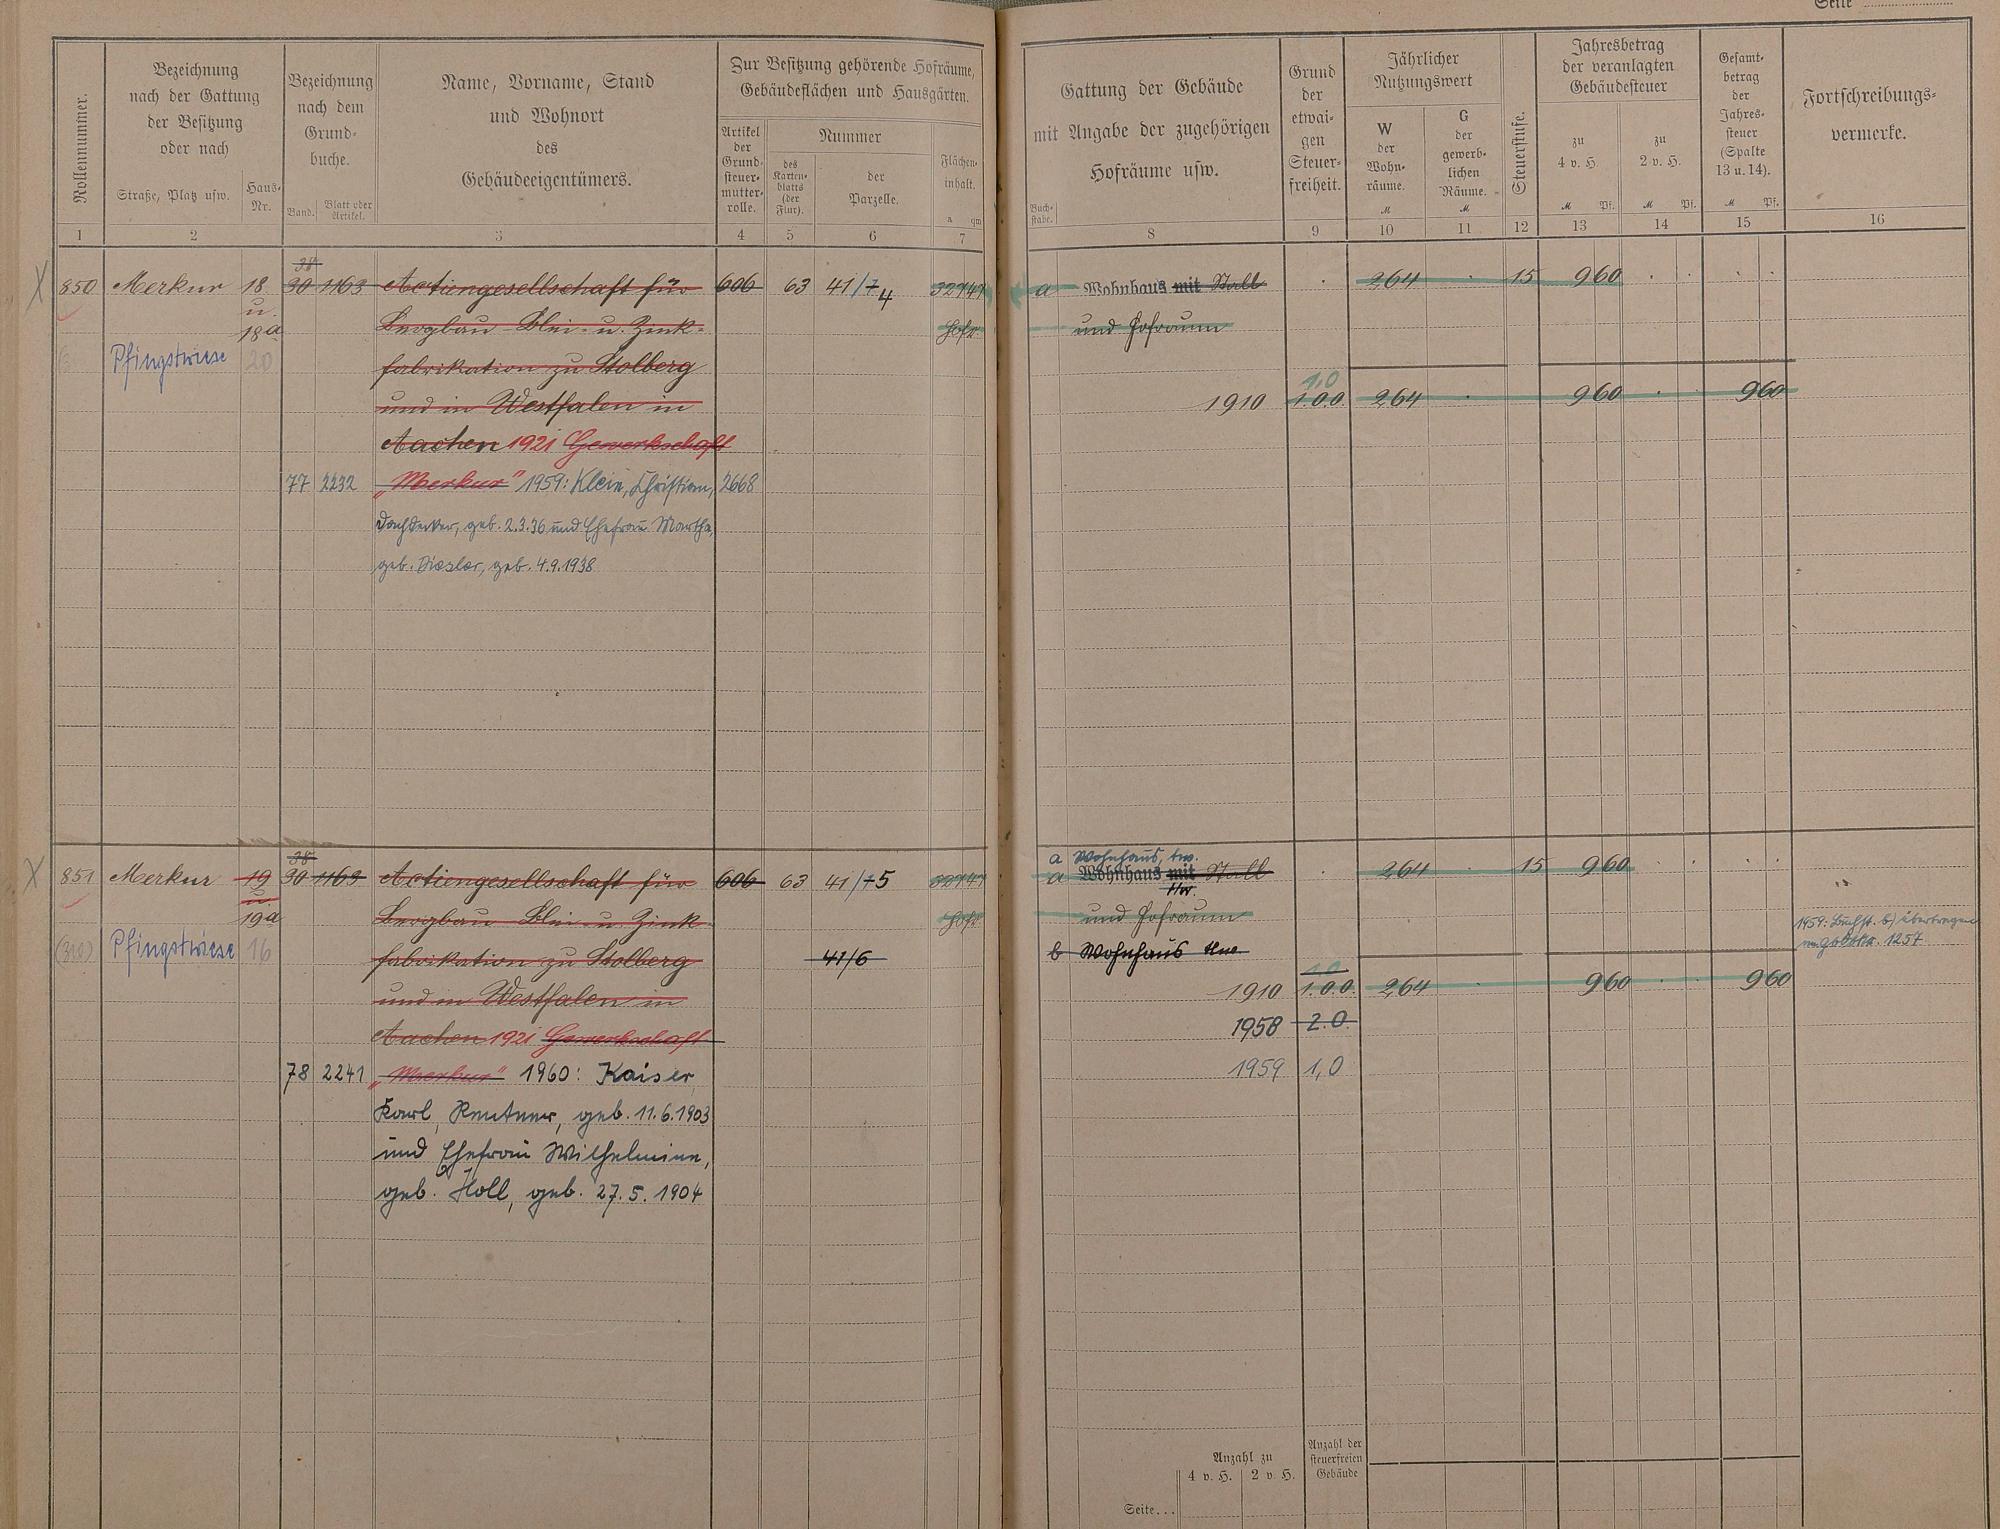 Seite
Rollennummer.
Bezeichnung
nach der Gattung
der Besitzung
oder nach
Straße, Platz usw.
Haus-
Nr.
Bezeichnung
nach dem
Grund-
buche.
Band.
Blatt oder
Artikel.
Name, Vorname, Stand
und Wohnort
des
Gebäudeeigentümers.
Zur Besitzung gehörende Hofräume,
Gebäudeflächen und Hausgärten.
Artikel
der
Grund-
steuer-
mutter-
rolle.
Nummer
des
Karten-
blatts
(der
Flur).
der
Parzelle.
Flächen-
inhalt.
a qm
Buch-
stabe.
Gattung der Gebäude
mit Angabe der zugehörigen
Hofräume usw.
Grund
der
etwai-
gen
Steuer-
freiheit.
Jährlicher
Nutzungswert
W
der
Wohn-
räume.
M
G
der
gewerb-
lichen
Räume.
M
Steuerstufe.
Jahresbetrag
der veranlagten
Gebäudesteuer
zu
4 v. H.
M Pf.
zu
2 v. H.
M Pf.
Gesamt-
betrag
der
Jahres-
steuer
(Spalte
13 u. 14).
M Pf.
Fortschreibungs-
vermerke.
1 2 3 4 5 6 7 8 9 10 11 12 13 14 15 16
38
850 Merkur 18 30 1163 Actiengesellschaft für 606 63 41/74 32747 a Wohnhaus mit Stall 264 15 960
u.
18a Bergbau Blei- u. Zink- Hofr und Hofraum
Pfingstwiese 20 fabrikation zu Stolberg
1,0
und in Westfalen in 1910 1.0.0 264 960 960
Aachen 1921 Gewerkschaft
77 2232 „Merkur" 1959: Klein, Christian, 2668
Dachdecker, geb. 2.3.36 und Ehefrau Martha,
geb. geb. 4.9.1938
38 a Wohnhaus, tw.
851 Merkur 19 30 1163 Actiengesellschaft für 606 63 41/75 32747 a Wohnhaus mit Stall 264 15 960
u.
19a Bergbau Blei- u. Zink- Hofr und Hofraum 1959: Buchst. b) übertragen
n. 1257
(310) Pfingstwiese 16 fabrikation zu Stolberg 41/6 b Wohnhaus tlw.
und in Westfalen in 1910 1.0.0. 264 960 960
Aachen 1921 Gewerkschaft 1958 2.0.
78 2241 „Merkur" 1960: Kaiser, 1959 1,0
Karl, Rentner, geb. 11.6.1903
und Ehefrau Wilhelmine,
geb. Holl, geb. 27.5.1904
Anzahl zu
4 v. H. 2 v. H.
Anzahl der
steuerfreien
Gebäude
Seite...